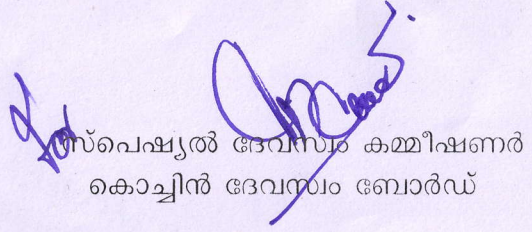 For
സ്പെഷ്യൽ ദേവസ്വം കമ്മീഷണർ
കൊച്ചിൻ ദേവസ്വം ബോർഡ്